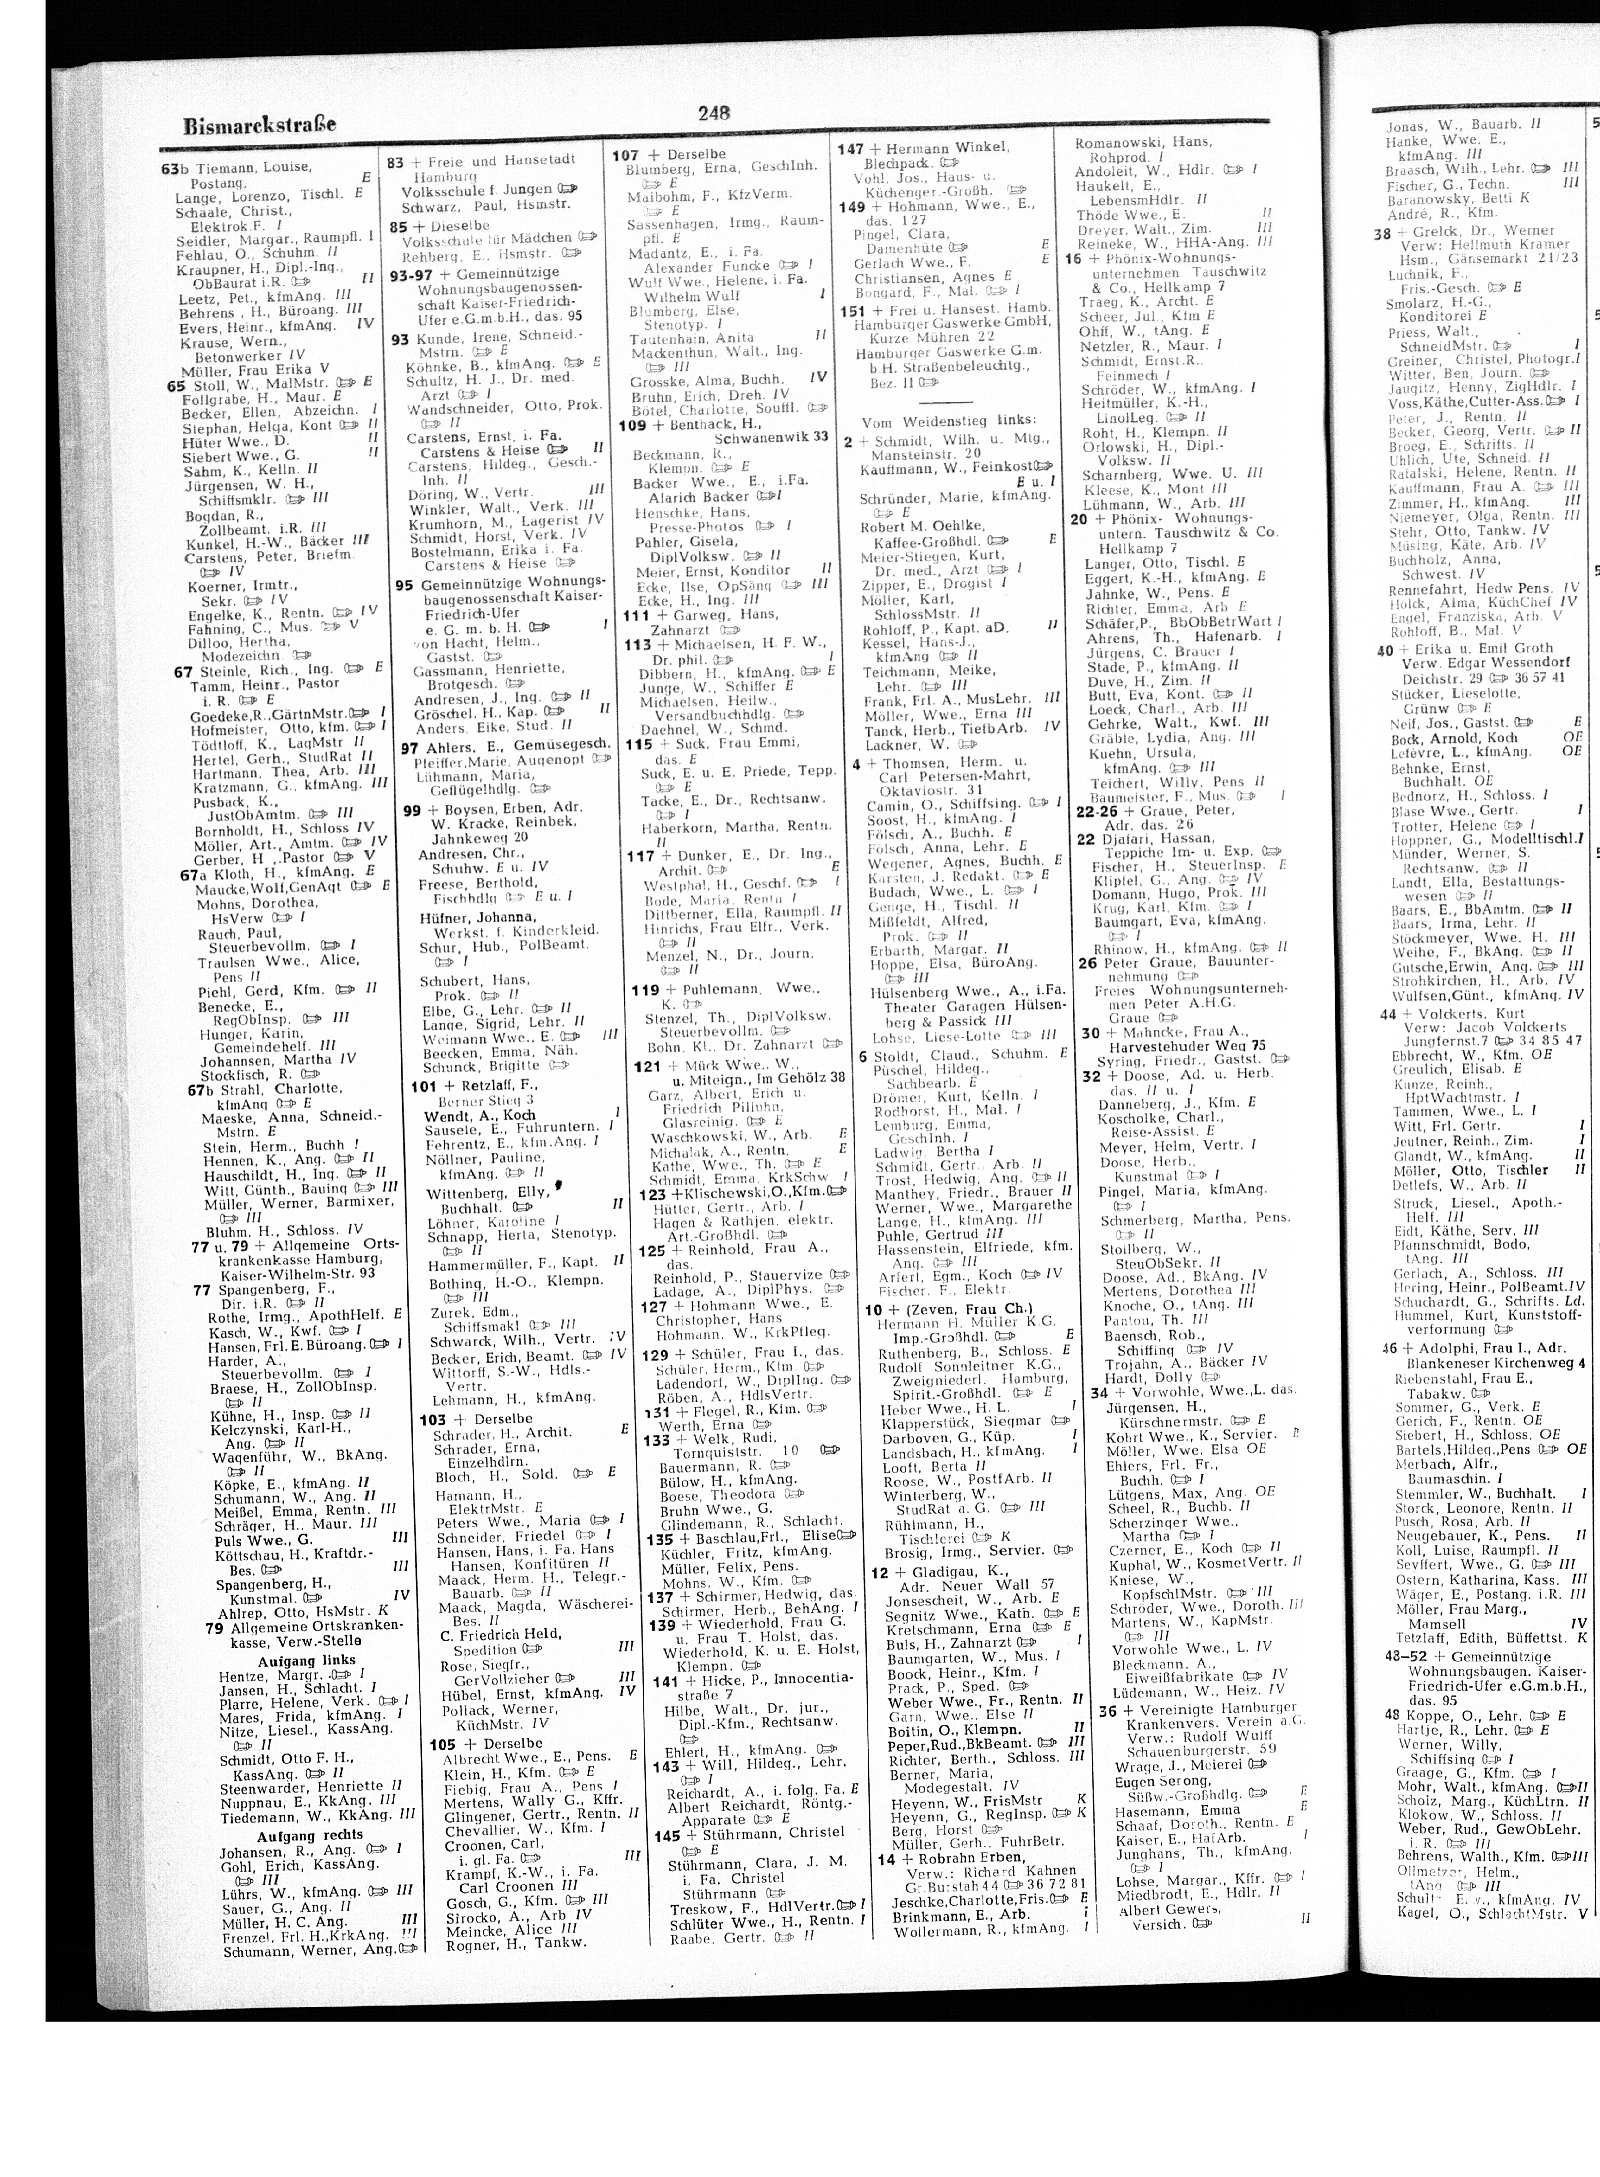 Bismarckstraße
248
63b Tiemann, Louise,
Postang. E
Lange, Lorenzo, Tischl. E
Schaale, Christ.,
Elektrok.F. I
Seidler, Margar., Raumpfl. I
Fehlau, O., Schuhm. II
Kraupner, H., Dipl.-Ing.,
ObBaurat i.R. II
Leetz, Pet., kfmAng. III
Behrens, H., Büroang. III
Evers, Heinr., kfmAng. IV
Krause, Wern.,
Betonwerker IV
Müller, Frau Erika V
65 Stoll, W., MalMstr. E
Follgrabe, H., Maur. E
Becker, Ellen, Abzeichn. I
Stephan, Helga, Kont II
Hüter Wwe., D. II
Siebert Wwe., G. II
Sahm, K., Kelln. II
Jürgensen, W. H.,
Schiffsmklr. III
Bogdan, R.,
Zollbeamt. i.R. III
Kunkel, H.-W., Bäcker III
Carstens, Peter, Briefm.
IV
Koerner, Irmtr.,
Sekr. IV
Engelke, K., Rentn. IV
Fahning, C., Mus. V
Dilloo, Hertha,
Modezeichn
67 Steinle, Rich., Ing. E
Tamm, Heinr., Pastor
i. R. E
Goedeke,R.,GärtnMstr. I
Hofmeister, Otto, kfm. I
Tödtloff, K., LagMstr II
Hertel, Gerh., StudRat II
Hartmann, Thea, Arb. III
Kratzmann, G., kfmAng. III
Pusback, K.,
JustObAmtm. III
Bornholdt, H., Schloss IV
Möller, Art., Amtm. IV
Gerber, H ,.Pastor V
67a Kloth, H., kfmAng. E
Maucke,Wolf,GenAgt E
Mohns, Dorothea,
HsVerw I
Rauch, Paul,
Steuerbevollm. I
Traulsen Wwe., Alice,
Pens II
Piehl, Gerd, Kfm. II
Benecke, E.,
RegObInsp. III
Hunger, Karin,
Gemeindehelf. III
Johannsen, Martha IV
Stockfisch, R.
67b Strahl, Charlotte,
kfmAng E
Maeske, Anna, Schneid.-
Mstrn. E
Stein, Herm., Buchh I
Hennen, K., Ang. II
Hauschildt, H., Ing II
Witt, Günth., Bauing III
Müller, Werner, Barmixer,
III
Bluhm, H., Schloss. IV
77 u. 79 + Allgemeine Orts-
krankenkasse Hamburg,
Kaiser-Wilhelm-Str. 93
77 Spangenberg, F.,
Dir. i.R. II
Rothe, Irmg., ApothHelf. E
Kasch, W., Kwf. I
Hansen,Frl.E.Büroang. I
Harder, A.,
Steuerbevollm. I
Braese, H., ZollObInsp.
II
Kühne, H., Insp. II
Kelczynski, Karl-H.,
Ang. II
Wagenführ, W., BkAng.
II
Köpke, E., kfmAng. II
Schumann, W., Ang. II
Meißel, Emma, Rentn. III
Schräger, H., Maur. III
Puls Wwe., G. III
Köttschau, H., Kraftdr.-
Bes. III
Spangenberg, H.,
Kunstmal. IV
Ahlrep, Otto, HsMstr. K
79 Allgemeine Ortskranken-
kasse, Verw.-Stelle
Aufgang links
Hentze, Margr. I
Jansen, H., Schlacht. I
Plarre, Helene, Verk. I
Mares, Frida, kfmAng. I
Nitze, Liesel., KassAng.
II
Schmidt, Otto F. H.,
KassAng. II
Steenwarder, Henriette II
Nuppnau, E., KkAng. III
Tiedemann, W., KkAng. III
Aufgang rechts
Johansen, R., Ang. I
Gohl, Erich, KassAng.
III
Lührs, W., kfmAng. III
Sauer, G., Ang. II
Müller, H. C. Ang. III
Frenzel, Frl. H.,KrkAng. III
Schumann, Werner, Ang.
83 + Freie und Hansetadt
Hamburg
Volksschule f. Jungen
Schwarz, Paul, Hsmstr.
85 + Dieselbe
Volksschule für Mädchen
Rehberg, E., Hsmstr.
93-97 + Gemeinnützige
Wohnungsbaugenossen-
schaft Kaiser-Friedrich-
Ufer e.G.m.b.H., das. 95
93 Kunde, Irene, Schneid.-
Mstrn. E
Köhnke, B., kfmAng. E
Schultz, H. J., Dr. med.
Arzt I
Wandschneider, Otto, Prok.
II
Carstens, Ernst, i. Fa.
Carstens & Heise II
Carstens, Hildeg., Gesch.-
Inh. II
Döring, W., Vertr. III
Winkler, Walt., Verk. III
Krumhorn, M., Lagerist IV
Schmidt, Horst, Verk. IV
Bostelmann, Erika i. Fa.
Carstens & Heise
95 Gemeinnützige Wohnungs-
baugenossenschaft Kaiser-
Friedrich-Ufer
e. G. m. b. H. I
von Hacht, Helm.,
Gastst.
Gassmann, Henriette,
Brotgesch.
Andresen, J., Ing. II
Gröschel, H., Kap. II
Anders, Eike, Stud. II
97 Ahlers, E., Gemüsegesch.
Pfeiffer,Marie, Augenopt
Lühmann, Maria,
Geflügelhdlg.
99 + Boysen, Erben, Adr.
W. Kracke, Reinbek,
Jahnkeweg 20
Andresen, Chr.,
Schuhw. E u. IV
Freese, Berthold,
Fischhdlg E u. I
Hüfner, Johanna,
Werkst. f. Kinderkleid.
Schur, Hub., PolBeamt.
I
Schubert, Hans,
Prok. II
Elbe, G., Lehr. II
Lange, Sigrid, Lehr. II
Weimann Wwe., E. III
Beecken, Emma, Näh.
Schunck, Brigitte
101 + Retzlaff, F.,
Berner Stieg 3
Wendt, A., Koch I
Sausele, E., Fuhruntern. I
Fehrentz, E., kfm.Ang. I
Nöllner, Pauline,
kfmAng. II
Wittenberg, Elly,
Buchhalt. II
Löhner, Karoline I
Schnapp, Herta, Stenotyp.
II
Hammermüller, F., Kapt. II
Bothing, H.-O., Klempn.
III
Zurek, Edm.,
Schiffsmakl III
Schwarck, Wilh., Vertr. IV
Becker, Erich, Beamt. IV
Wittorff, S.-W., Hdls.-
Vertr.
Lehmann, H., kfmAng.
103 + Derselbe
Schrader, H., Archit. E
Schrader, Erna,
Einzelhdlrn.
Bloch, H., Sold. E
Hamann, H.,
ElektrMstr. E
Peters Wwe., Maria I
Schneider, Friedel I
Hansen, Hans, i. Fa. Hans
Hansen, Konfitüren II
Maack, Herm. H., Telegr.-
Bauarb. II
Maack, Magda, Wäscherei-
Bes. II
C. Friedrich Held,
Spedition III
Rose, Siegfr.,
GerVollzieher III
Hübel, Ernst, kfmAng. IV
Pollack, Werner,
KüchMstr. IV
105 + Derselbe
Albrecht Wwe., E., Pens. E
Klein, H., Kfm. E
Fiebig, Frau A., Pens I
Mertens, Wally G., Kffr.
Glingener, Gertr., Rentn. II
Chevallier, W., Kfm. I
Croonen, Carl,
i. gl. Fa. III
Krampf, K.-W., i. Fa.
Carl Croonen III
Gosch, G., Kfm. III
Sirocko, A., Arb IV
Meincke, Alice III
Rogner, H., Tankw.
107 + Derselbe
Blumberg, Erna, GeschInh.
E
Maibohm, F., KfzVerm.
E
Sassenhagen, Irmg., Raum-
pfl. E
Madantz, E., i. Fa.
Alexander Funcke I
Wulf Wwe., Helene, i. Fa.
Wilhelm Wulf I
Blumberg, Else,
Stenotyp. I
Tautenhain, Anita II
Mackenthun, Walt., Ing.
III
Grosske, Alma, Buchh. IV
Bruhn, Erich, Dreh. IV
Bötel, Charlotte, Souffl.
109 + Benthack, H.,
Schwanenwik 33
Beckmann, R.,
Klempn. E
Backer Wwe., E., i.Fa.
Alarich Backer I
Henschke, Hans,
Presse-Photos I
Pahler, Gisela,
DiplVolksw. II
Meier, Ernst, Konditor II
Ecke, Ilse, OpSäng III
Ecke, H., Ing. III
111 + Garweg, Hans,
Zahnarzt
113 + Michaelsen, H. F. W.,
Dr. phil. I
Dibbern, H., kfmAng. E
Junge, W., Schiffer E
Michaelsen, Heilw.,
Versandbuchhdlg.
Daehnel, W., Schmd.
115 + Suck, Frau Emmi,
das. E
Suck, E. u. E. Priede, Tepp.
E
Tacke, E., Dr., Rechtsanw.
I
Haberkorn, Martha, Rentn.
II
117 + Dunker, E., Dr. Ing.,
Archit. E
Westphal, H., Geschf. I
Bode, Maria, Rentn I
Dittberner, Ella, Raumpfl. II
Hinrichs, Frau Elfr., Verk.
II
Menzel, N., Dr., Journ.
II
119 + Puhlemann, Wwe.,
K.
Stenzel, Th., DiplVolksw.
Steuerbevollm.
Bohn, Kl., Dr. Zahnarzt
121 + Mück Wwe., W.,
u. Miteign., Im Gehölz 38
Garz, Albert, Erich u.
Friedrich Piliuhn,
Glasreinig. E
Waschkowski, W., Arb. E
Michalak, A., Rentn. E
Kathe, Wwe., Th. E
Schmidt, Emma, KrkSchw. I
123 +Klischewski,O.,Kfm.
Hütter, Gertr., Arb. I
Hagen & Rathjen, elektr.
Art.-Großhdl.
125 + Reinhold, Frau A.,
das.
Reinhold, P., Stauervize
Ladage, A., DiplPhys.
127 + Hohmann Wwe., E.
Christopher, Hans
Hohmann, W., KrkPfleg.
129 + Schüler, Frau I., das.
Schüler, Herm., Kfm
Ladendorf, W., DiplIng.
Röben, A., HdlsVertr.
131 + Flegel, R., Kfm.
Werth, Erna
133 + Welk, Rudi,
Tornquiststr. 10
Bauermann, R.
Bülow, H., kfmAng.
Boese, Theodora
Bruhn Wwe., G.
Glindemann, R., Schlacht.
135 + Baschlau,Frl., Elise
Küchler, Fritz, kfmAng.
Müller, Felix, Pens.
Mohns, W., Kfm.
137 + Schirmer, Hedwig, das.
Schirmer, Herb., BehAng. I
139 + Wiederhold, Frau G.
u. Frau T. Holst, das.
Wiederhold, K. u. E. Holst,
Klempn.
141 + Hicke, P., Innocentia-
straße 7
Hilbe, Walt., Dr. jur.,
Dipl.-Kfm., Rechtsanw.
Ehlert, H., kfmAng.
143 + Will, Hildeg., Lehr.
I
Reichardt, A., i. folg. Fa. E
Albert Reichardt, Röntg.-
Apparate E
145 + Stührmann, Christel
E
Stührmann, Clara, J. M.
i. Fa. Christel
Stührmann
Treskow, F., HdlVertr. I
Schlüter Wwe., H., Rentn. I
Raabe, Gertr. II
147 + Hermann Winkel,
Blechpack.
Vohl, Jos., Haus- u.
Küchenger.-Großh.
149 + Hohmann, Wwe., E.,
das. 127
Pingel, Clara,
Damenhüte E
Gerlach Wwe., F. E
Christiansen, Agnes E
Bongard, F., Mal. I
151 + Frei u. Hansest. Hamb.
Hamburger Gaswerke GmbH,
Kurze Mühren 22
Hamburger Gaswerke G.m.
b H. Straßenbeleuchtg.,
Bez. II
Vom Weidenstieg links:
2 + Schmidt, Wilh. u. Mtg.,
Mansteinstr. 20
Kauffmann, W., Feinkost
E u. I
Schründer, Marie, kfmAng.
E
Robert M. Oehlke,
Kaffee-Großhdl. E
Meier-Stiegen, Kurt,
Dr. med., Arzt I
Zipper, E., Drogist I
Möller, Karl,
SchlossMstr. II
Rohloff, P., Kapt. aD. II
Kessel, Hans-J.,
kfmAng II
Teichmann, Meike,
Lehr. III
Frank, Frl. A., MusLehr. III
Möller, Wwe., Erna III
Tanck, Herb., TiefbArb. IV
Lackner, W.
4 + Thomsen, Herm. u.
Carl Petersen-Mahrt,
Oktaviostr. 31
Camin, O., Schiffsing. I
Soost, H., kfmAng. I
Fölsch, A., Buchh. E
Fölsch, Anna, Lehr. E
Wegener, Agnes, Buchh. E
Karsten, J. Redakt. E
Budach, Wwe., L. I
Genge, H., Tischl. II
Mißfeldt, Alfred,
Prok. II
Erbarth, Margar. II
Hoppe, Elsa, BüroAng.
III
Hülsenberg Wwe., A., i.Fa.
Theater Garagen Hülsen-
berg & Passick III
Lohse, Liese-Lotte III
6 Stoldt, Claud., Schuhm. E
Püschel, Hildeg.,
Sachbearb. E
Drömer, Kurt, Kelln. I
Rodhorst, H., Mal. I
Lemburg, Emma,
GeschInh. I
Ladwig, Bertha I
Schmidt, Gertr., Arb. II
Trost, Hedwig, Ang. II
Manthey, Friedr., Brauer II
Werner, Wwe., Margarethe
Lange, H., kfmAng. III
Puhle, Gertrud III
Hassenstein, Elfriede, kfm.
Ang. III
Arfert, Egm., Koch IV
Fischer, F., Elektr.
10 + (Zeven, Frau Ch.)
Hermann H. Müller K.G.
Imp.-Großhdl. E
Ruthenberg, B., Schloss. E
Rudolf Sonnleitner K.G.,
Zweigniederl. Hamburg,
Spirit.-Großhdl. E
Heber Wwe., H. L. I
Klapperstück, Siegmar
Darboven, G., Küp. I
Landsbach, H., kfmAng. I
Looft, Berta II
Roose, W., PostfArb. II
Winterberg, W.,
StudRat a. G. III
Rühlmann, H.,
Tischlerei K
Brosig, Irmg., Servier.
12 + Gladigau, K.,
Adr. Neuer Wall 57
Jonsescheit, W., Arb. E
Segnitz Wwe., Kath. E
Kretschmann, Erna E
Buls, H., Zahnarzt I
Baumgarten, W., Mus. I
Boock, Heinr., Kfm. I
Prack, P., Sped.
Weber Wwe., Fr., Rentn. II
Garn, Wwe., Else II
Boitin, O., Klempn. II
Peper,Rud.,BkBeamt. III
Richter, Berth., Schloss. III
Berner, Maria,
Modegestalt. IV
Heyenn, W., FrisMstr K
Heyenn, G., RegInsp. K
Berg, Horst
Müller, Gerh., FuhrBetr.
14 + Robrahn Erben,
Verw.: Richard Kahnen
Gr.Burstah 44 36 72 81
Jeschke,Charlotte,Fris. E
Brinkmann, E., Arb. I
Wollermann, R., kfmAng. I
Romanowski, Hans,
Rohprod. I
Andoleit, W., Hdlr. I
Haukelt, E.,
LebensmHdlr. II
Thöde Wwe., E. II
Dreyer, Walt., Zim. III
Reineke, W., HHA-Ang. III
16 + Phönix-Wohnungs-
unternehmen Tauschwitz
& Co., Hellkamp 7
Traeg, K., Archt. E
Scheer, Jul., Kfm E
Ohff, W., tAng. E
Netzler, R., Maur. I
Schmidt, Ernst.R.,
Feinmech I
Schröder, W., kfmAng. I
Heitmüller, K.-H.,
LinolLeg. II
Roht, H., Klempn. II
Orlowski, H., Dipl.-
Volksw. II
Scharnberg, Wwe. U. III
Kleese, K., Mont III
Lühmann, W., Arb. III
20 + Phönix- Wohnungs-
untern. Tauschwitz & Co.
Hellkamp 7
Langer, Otto, Tischl. E
Eggert, K.-H., kfmAng. E
Jahnke, W., Pens. E
Richter, Emma, Arb E
Schäfer,P., BbObBetrWart I
Ahrens, Th., Hafenarb. I
Jürgens, C. Brauer I
Stade, P., kfmAng. II
Duve, H., Zim. II
Butt, Eva, Kont. II
Loeck, Charl., Arb. III
Gehrke, Walt., Kwf. III
Gräble, Lydia, Ang. III
Kuehn, Ursula,
kfmAng. III
Teichert, Willy, Pens II
Baumeister, F., Mus. I
22-26 + Graue, Peter,
Adr. das. 26
22 Djafari, Hassan,
Teppiche Im- u. Exp.
Fischer, H., SteuerInsp. E
Klipfel, G., Ang. IV
Domann, Hugo, Prok. III
Krug, Karl, Kfm. I
Baumgart, Eva, kfmAng.
I
Rhinow, H., kfmAng. II
26 Peter Graue, Bauunter-
nehmung
Freies Wohnungsunterneh-
men Peter A.H.G.
Graue
30 + Mahncke, Frau A.,
Harvestehuder Weg 75
Syring, Friedr., Gastst.
32 + Doose, Ad. u. Herb.
das. II u. I
Danneberg, J., Kfm. E
Koscholke, Charl.,
Reise-Assist. E
Meyer, Helm, Vertr. I
Doose, Herb.,
Kunstmal I
Pingel, Maria, kfmAng.
I
Schmerberg, Martha, Pens.
II
Stollberg, W.,
SteuObSekr. II
Doose, Ad., BkAng. IV
Mertens, Dorothea III
Knoche, O., tAng. III
Pantou, Th. III
Baensch, Rob.,
Schiffing IV
Trojahn, A., Bäcker IV
Hardt, Dolly
34 + Vorwohle, Wwe.,L. das.
Jürgensen, H.,
Kürschnermstr. E
Kohrt Wwe., K., Servier.
Möller, Wwe. Elsa OE
Ehlers, Frl. Fr.,
Buchh. I
Lütgens, Max, Ang. OE
Scheel, R., Buchb. II
Scherzinger Wwe.,
Martha I
Czerner, E., Koch II
Kuphal, W., KosmetVertr. II
Kniese, W.,
KopfschlMstr. III
Schröder, Wwe., Doroth. III
Martens, W., KapMstr.
III
Vorwohle Wwe., L. IV
Bleckmann, A.,
Eiweißfabrikate IV
Lüdemann, W., Heiz. IV
36 + Vereinigte Hamburger
Krankenvers. Verein a.G.
Verw.: Rudolf Wulff
Schauenburgerstr. 59
Wrage, J., Meierei
Eugen Serong,
Süßw.-Großhdlg. E
Hasemann, Emma E
Schaaf, Doroth., Rentn. E
Kaiser, E., HafArb. I
Junghans, Th., kfmAng.
I
Lohse, Margar., Kffr. I
Miedbrodt, E., Hdlr. II
Albert Gewers,
Versich. II
Jonas, W., Bauarb. II
Hanke, Wwe. E.,
kfmAng. III
Braasch, Wilh., Lehr. III
Fischer, G., Techn. III
Baranowsky, Betti K
André, R., Kfm.
38 + Grelck, Dr., Werner
Verw: Hellmuth Kramer
Hsm., Gänsemarkt 21/23
Luchnik, F.,
Fris.-Gesch. E
Smolarz, H.-G.,
Konditorei E
Priess, Walt.,
SchneidMstr. I
Greiner, Christel, Photogr.I
Witter, Ben, Journ.
Jaugitz, Henny, ZigHdlr. I
Voss,Käthe,Cutter-Ass. I
Peter, J., Rentn. II
Becker, Georg, Vertr. II
Broeg, E., Schrifts. II
Uhlich, Ute, Schneid. II
Rafalski, Helene, Rentn. II
Kauffmann, Frau A. III
Zimmer, H., kfmAng. III
Niemeyer, Olga, Rentn. III
Stehr, Otto, Tankw. IV
Müsing, Käte, Arb. IV
Buchholz, Anna,
Schwest. IV
Rennefahrt, Hedw Pens. IV
Holck, Alma, KüchChef IV
Engel, Franziska, Arb. V
Rohloff, B., Mal. V
40 + Erika u. Emil Groth
Verw. Edgar Wessendorf
Deichstr. 29 36 57 41
Stücker, Lieselotte,
Grünw E
Neif, Jos., Gastst. E
Bock, Arnold, Koch OE
Lefèvre, L., kfmAng. OE
Behnke, Ernst,
Buchhalt. OE
Bednorz, H., Schloss. I
Blase Wwe., Gertr. I
Trotter, Helene I
Höppner, G., Modelltischl.I
Münder, Werner, S.
Rechtsanw. II
Landt, Ella, Bestattungs-
wesen II
Baars, E., BbAmtm. II
Baars, Irma, Lehr. II
Stöckmeyer, Wwe. H. III
Weihe, F., BkAng. II
Gutsche,Erwin, Ang. III
Strohkirchen, H., Arb. IV
Wulfsen,Günt., kfmAng. IV
44 + Volckerts, Kurt
Verw: Jacob Volckerts
Jungfernst.7 34 85 47
Ebbrecht, W., Kfm. OE
Greulich, Elisab. E
Kunze, Reinh.,
HptWachtmstr. I
Tammen, Wwe., L. I
Witt, Frl. Gertr. I
Jeutner, Reinh., Zim. I
Glandt, W., kfmAng. II
Möller, Otto, Tischler II
Detlefs, W., Arb. II
Struck, Liesel., Apoth.-
Helf. III
Eidt, Käthe, Serv. III
Pfannschmidt, Bodo,
tAng. III
Gerlach, A., Schloss. III
Hering, Heinr., PolBeamt.IV
Schuchardt, G., Schrifts. Ld.
Hummel, Kurt, Kunststoff-
verformung
46 + Adolphi, Frau I., Adr.
Blankeneser Kirchenweg 4
Riebenstahl, Frau E.,
Tabakw.
Sommer, G., Verk. E
Gerich, F., Rentn. OE
Siebert, H., Schloss. OE
Bartels,Hildeg.,Pens OE
Merbach, Alfr.,
Baumaschin. I
Stemmler, W., Buchhalt. I
Storck, Leonore, Rentn. II
Pusch, Rosa, Arb. II
Neugebauer, K., Pens. II
Koll, Luise, Raumpfl. II
Seyffert, Wwe., G. III
Ostern, Katharina, Kass. III
Wäger, E., Postang. i.R. III
Möller, Frau Marg.,
Mamsell IV
Tetzlaff, Edith, Büffettst. K
48–52 + Gemeinnützige
Wohnungsbaugen. Kaiser-
Friedrich-Ufer e.G.m.b.H.,
das. 95
48 Koppe, O., Lehr. E
Hartje, R., Lehr. E
Werner, Willy,
Schiffsing I
Graage, G., Kfm. I
Mohr, Walt., kfmAng. II
Scholz, Marg., KüchLtrn. II
Klokow, W., Schloss. II
Weber, Rud., GewObLehr.
i. R. III
Behrens, Walth., Kfm. III
Ollmetzer, Helm.,
tAng III
kfmAng. IV
Kagel, O., SchlachtMstr. V